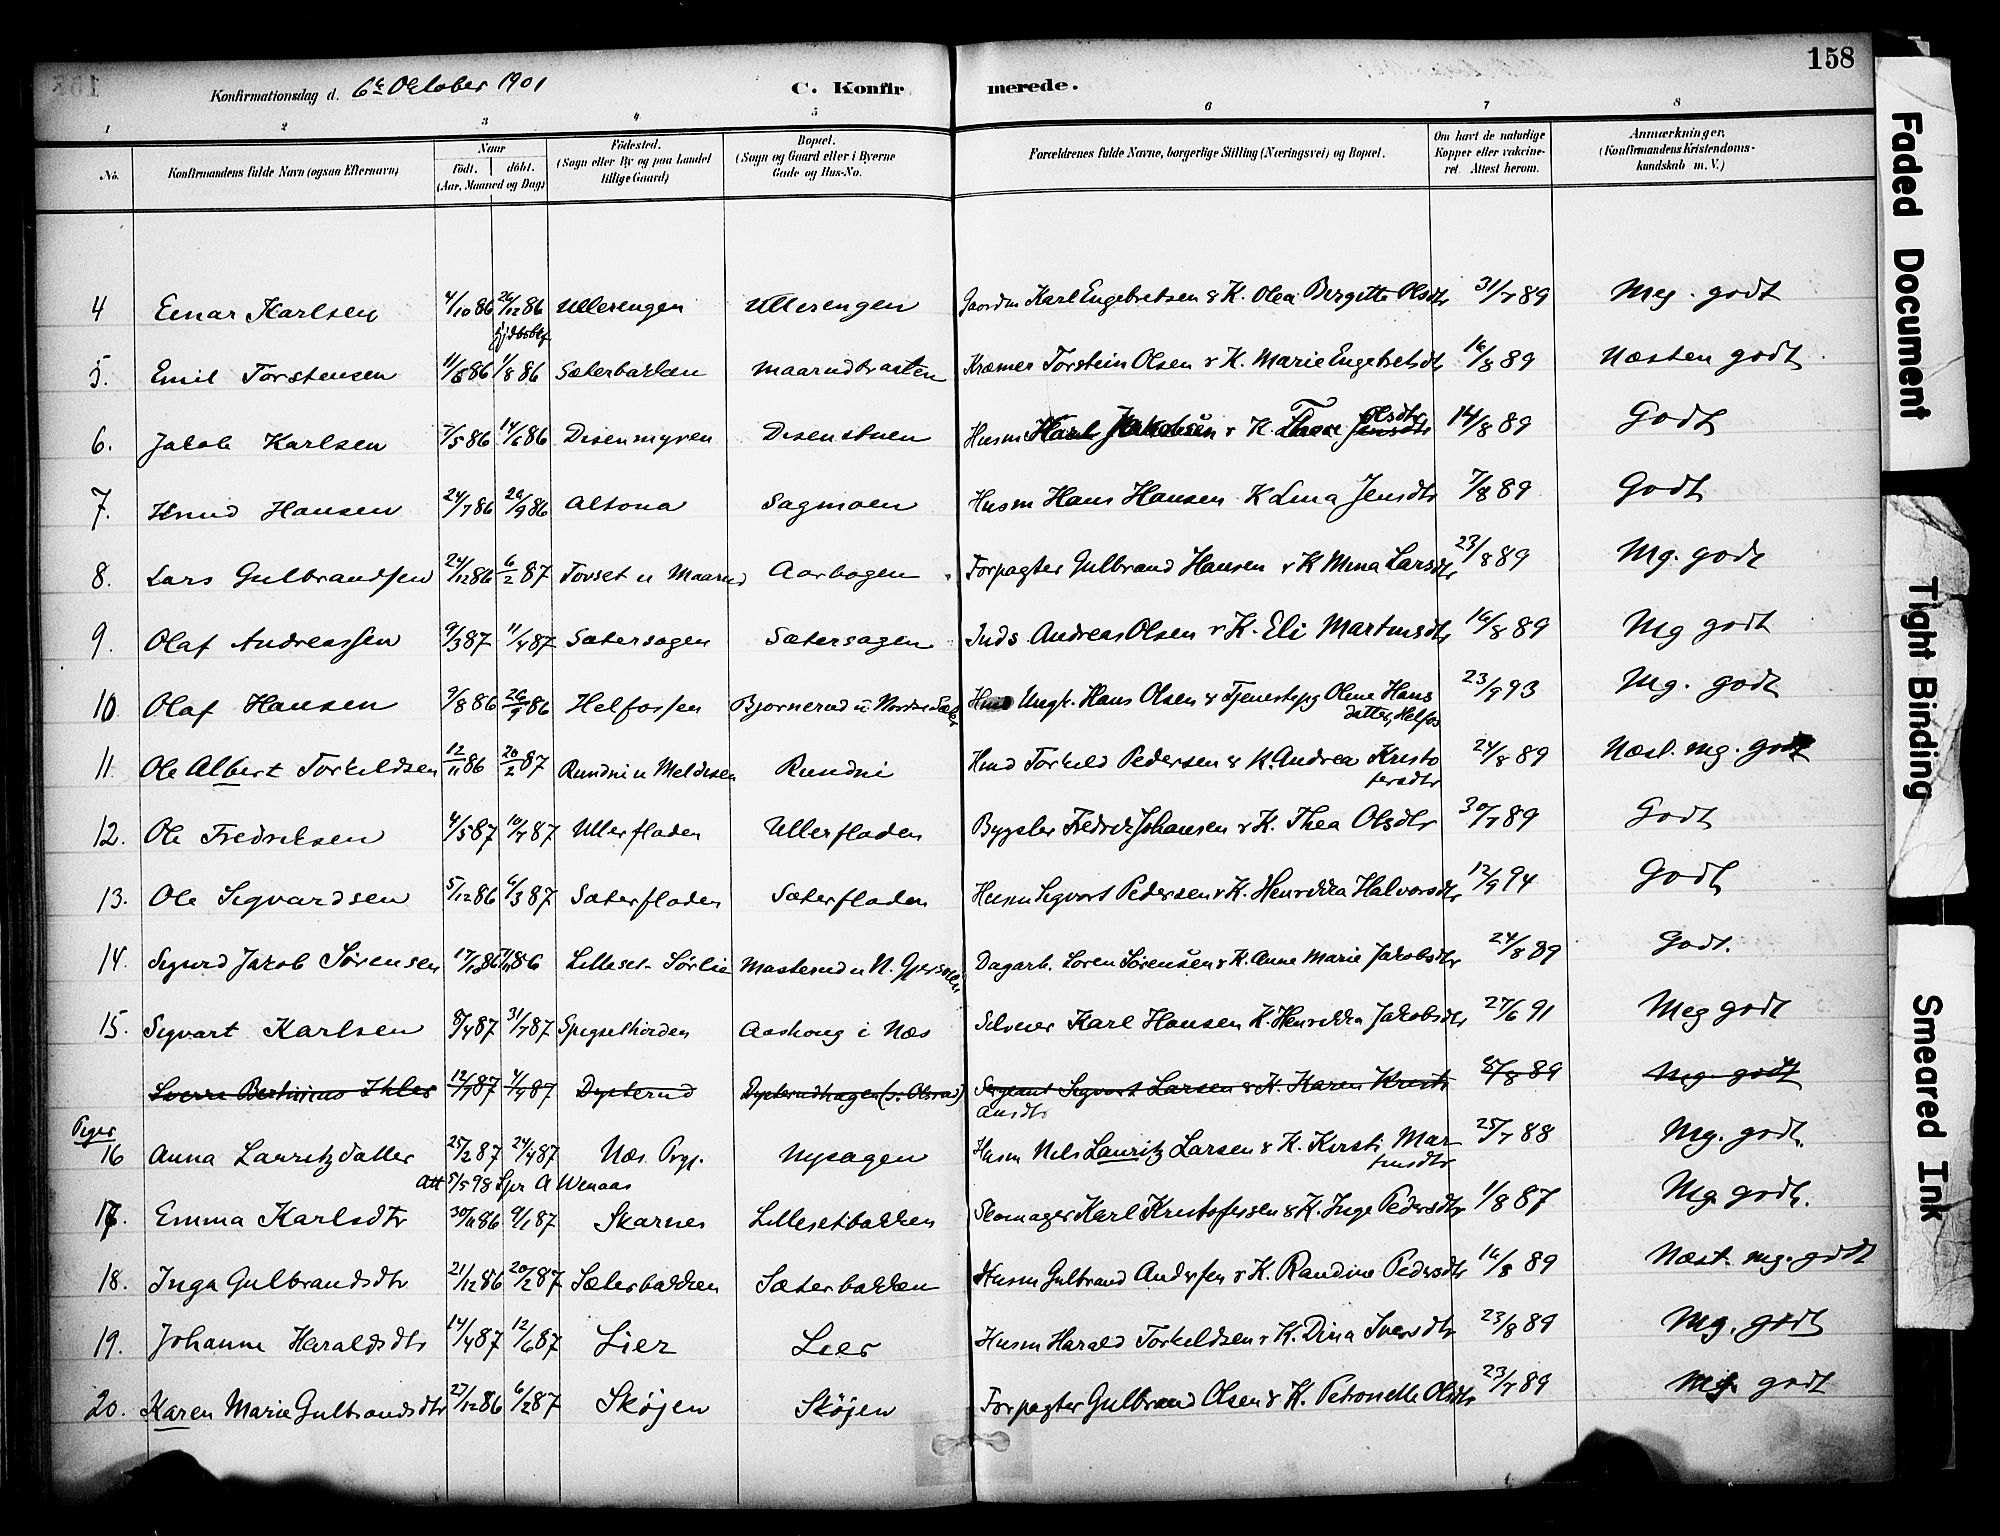 158
Konfirmationsdag d. 6te October 1901 C. Konfirmerede.
1 2 3 4 5 6 7 8
No. Konfirmandens fulde Navn (ogsaa Efternavn) Naar födt. döbt. (Aar, Maaned og Dag) Födested. (Sogn eller By og paa Landet tillige Gaard) Bopæl. (Sogn og Gaard eller i Byerne Gade og Hus-No. Forældrenes fulde Navne, borgerlige Stilling (Næringsvei) og Bopæl. Om havt de naturlige Kopper eller vakcineret. Attest herom. Anmærkninger. (Konfirmandens Kristendomskundskab m. V.)
4 Einar Karlsen 4/10 86 26/12 86 Ullerengen Ullerengen Gaardm Karl Engebretsen & K. Olea Bergitte Olsdtr 31/7 89 Meg. godt
hjdbsbkf
5. Emil Torstensen 11/6 86 1/8 86 Sæterbakken Maarudbraaten Kræmer Torstein Olsen & K. Marie Engebretsdtr 16/8 89 Næsten godt.
6. Jakob Karlsen 7/5 86 14/6 86 Disenmyren Disenstuen Husm Karl Jakobsen & K. Thea Jensdtr Olsdtr 14/8 89 Godt
7. Knud Hansen 24/7 86 26/9 86 Altona Sagmoen Husm Hans Hansen K Lina Jensdtr 7/8 89 Godt
8. Lars Gulbrandsen 24/12 86 6/2 87 Tovset u Maarud Aarbogen Forpagter Gulbrand Hansen & K Mina Larsdtr 23/8 89 Mg. godt
9. Olaf Andreassen 9/3 87 11/4 87 Sætersagen Sætersagen Inds Andreas Olsen & K. Eli Martinsdtr 16/8 89 Mg godt
10 Olaf Hansen 9/8 86 26/9 86 Helfossen Bjørnerud u Nordre Sæter Ungk. Hans Olsen & Tjenestepg Oline Hansdatter, Helfos 23/9 93 Mg. godt
11. Ole Albert Torkildsen 12/11 86 20/2 87 Rundni u Meldisen Rundni Husd Torkild Pedersen & K. Andrea Kristofersdtr 24/8 89 Næst. mg. godt
12. Ole Fredriksen 4/5 87 10/7 87 Ullerfladen Ullerfladen Bygsler Fredrik Johansen & K. Thea Olsdtr 30/7 89 Godt
13. Ole Sigvardsen 5/12 86 6/3 87 Sæterfladen Sæterfladen Husm Sigvart Pedersen & K. Henrikka Halvorsdtr 12/9 94 Godt
14. Sigurd Jacob Sørensen 17/10 86 86 Lilleset-Sørlie Masterud u N. Gjersøen Dagarb. Søren Sørensen & K. Anne Marie Jakobsdtr 24/8 89 Godt.
15. Sigvart Karlsen 8/4 87 31/7 87 Spigsethorden Aashoug i Næs Selveier Karl Hansen K. Henrikka Jakobsdtr 27/6 91 Meg godt
Sverre Bertinius Ihler 12/2 87 4/4 87 Dysterud Dysterudhagen (v. Olsrud) Sergeant Sigvart Larsen & K. Karen Kristiansdtr 25/8 89 Mg. godt
Piger
16 Anna Lauritzdatter 25/2 87 24/4 87 Næs Prgj. Nysagen Husm Nils Lauritz Larsen & K. Kirsti Martinsdtr 25/7 88 Mg. godt.
Att 5/5 98 Spr A Wenaas
17. Emma Karlsdtr 30/11 86 9/1 87 Skarnes Lillesetbakken Skomager Karl Kristofersen & K. Inge Pedersdtr 1/8 87 Mg godt.
18. Inga Gulbrandsdtr 21/12 86 20/2 87 Sæterbakken Sæterbakken Husm Gulbrand Andersen & K. Randine Pedersdtr 16/8 89 Næst. mg. godt
19. Johanne Haraldsdtr 14/4 87 12/6 87 Lier Lier Husm Harald Torkildsen & K. Dina Iversdtr 23/8 89 Mg. godt
20. Karen Marie Gulbrandsdtr 27/12 86 6/2 87 Skøjen Skøjen Forpagter Gulbrand Olsen & K. Petronelle Olsdtr 23/7 89 Mg godt
Faded Document
Tight Binding
Smeared Ink